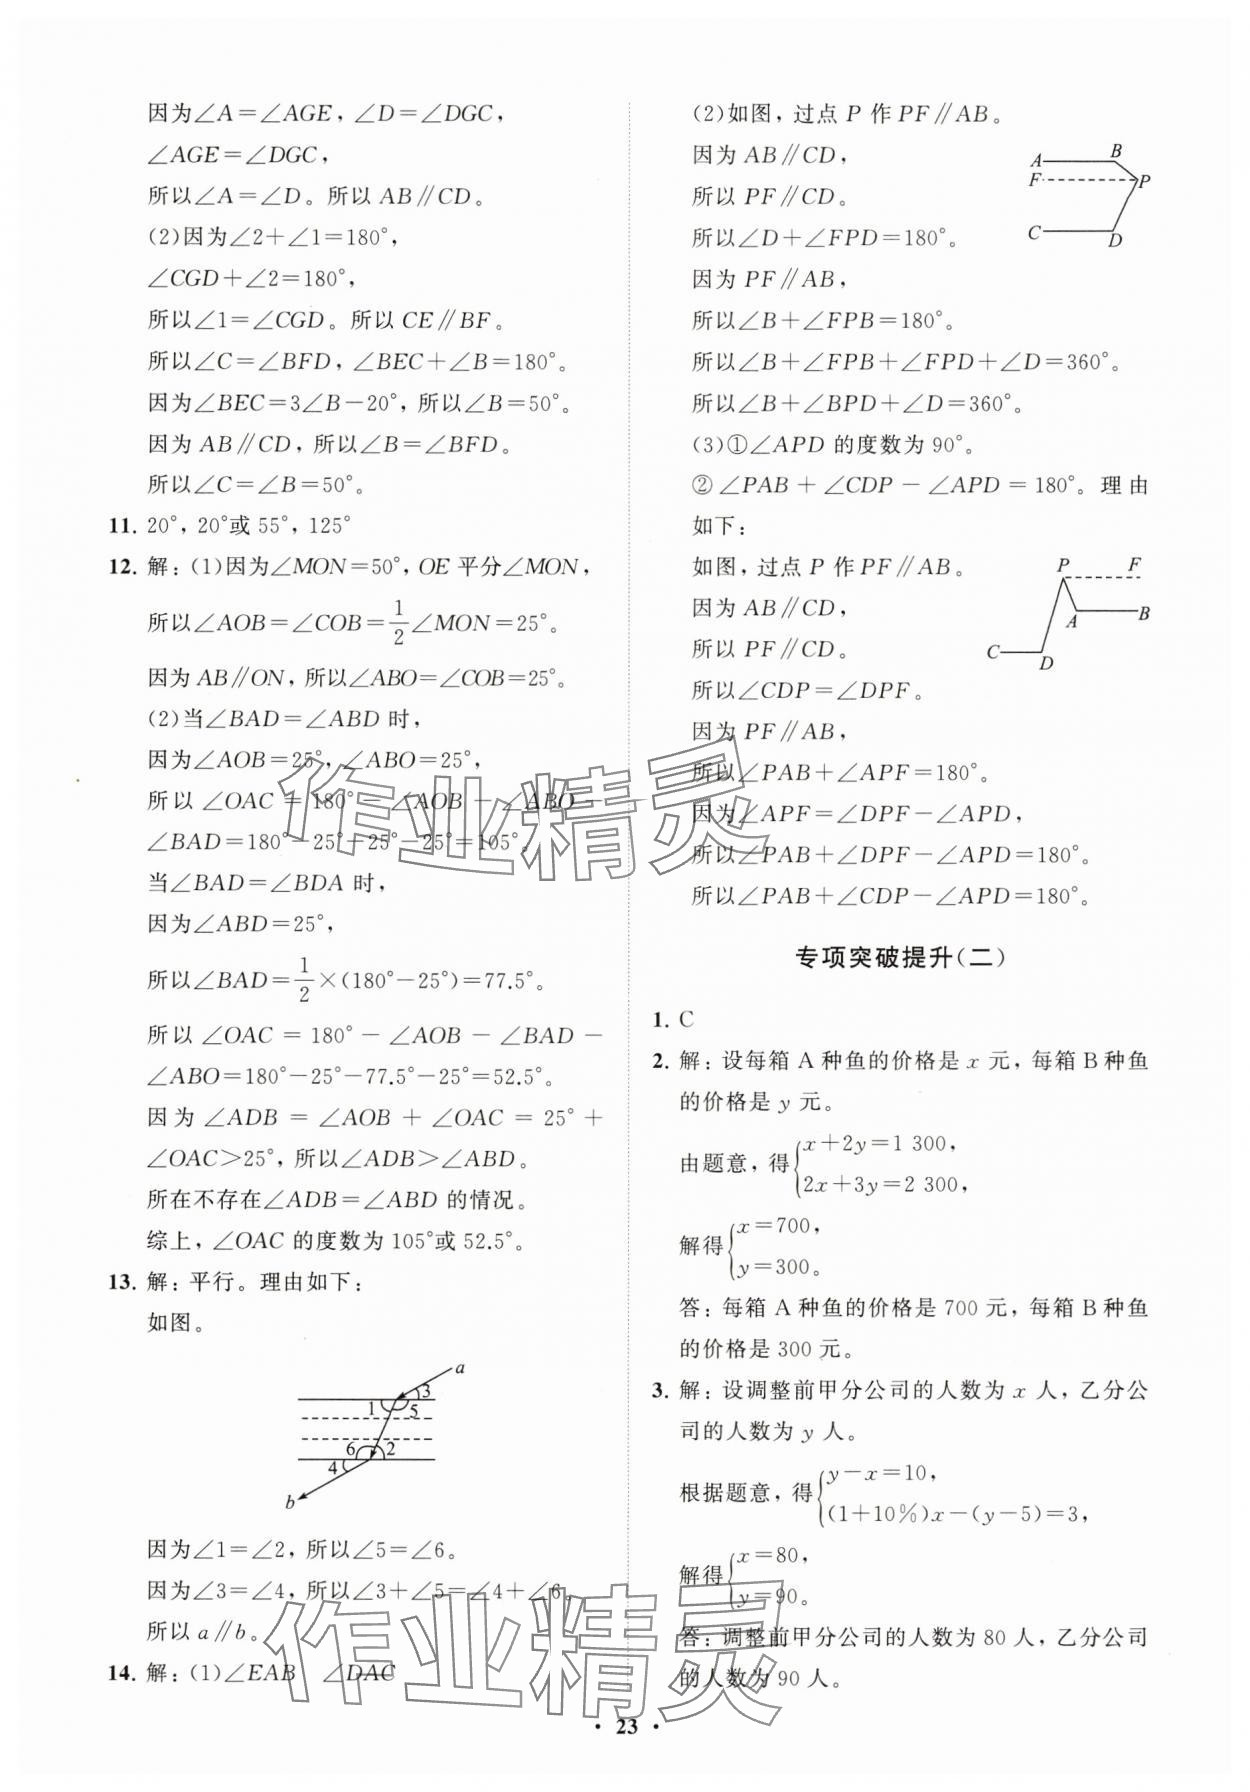 因为∠A=∠AGE，∠D=∠DGC，
∠AGE=∠DGC，
所以∠A=∠D。所以 AB∥CD。
(2)因为∠2+∠1=180°，
∠CGD+∠2=180°，
所以∠1=∠CGD。所以 CE∥BF。
所以∠C=∠BFD，∠BEC+∠B=180°。
因为∠BEC=3∠B-20°，所以∠B=50°。
因为 AB∥CD，所以∠B=∠BFD。
所以∠C=∠B=50°。
11. 20°，20°或 55°，125°
12. 解：(1)因为∠MON=50°，OE 平分∠MON，
所以∠AOB=∠COB=1/2∠MON=25°。
因为 AB∥ON，所以∠ABO=∠COB=25°。
(2)当∠BAD=∠ABD 时，
因为∠AOB=25°，∠ABO=25°，
所以 ∠OAC = 180° - ∠AOB - ∠ABO -
∠BAD=180°-25°-25°-25°=105°。
当∠BAD=∠BDA 时，
因为∠ABD=25°，
所以∠BAD=1/2×(180°-25°)=77.5°。
所以 ∠OAC = 180° - ∠AOB - ∠BAD -
∠ABO=180°-25°-77.5°-25°=52.5°。
因为 ∠ADB = ∠AOB + ∠OAC = 25° +
∠OAC>25°，所以∠ADB>∠ABD。
所在不存在∠ADB=∠ABD 的情况。
综上，∠OAC 的度数为 105°或 52.5°。
13. 解：平行。理由如下：
如图。
a
3
1 5
6 2
4
b
因为∠1=∠2，所以∠5=∠6。
因为∠3=∠4，所以∠3+∠5=∠4+∠6。
所以 a∥b。
14. 解：(1)∠EAB ∠DAC
(2)如图，过点 P 作 PF∥AB。
因为 AB∥CD，
所以 PF∥CD。
所以∠D+∠FPD=180°。
因为 PF∥AB，
所以∠B+∠FPB=180°。
所以∠B+∠FPB+∠FPD+∠D=360°。
所以∠B+∠BPD+∠D=360°。
A B
F P
C D
(3)①∠APD 的度数为 90°。
②∠PAB + ∠CDP - ∠APD = 180°。理由
如下：
如图，过点 P 作 PF∥AB。
因为 AB∥CD，
所以 PF∥CD。
所以∠CDP=∠DPF。
因为 PF∥AB，
所以∠PAB+∠APF=180°。
因为∠APF=∠DPF-∠APD，
所以∠PAB+∠DPF-∠APD=180°。
所以∠PAB+∠CDP-∠APD=180°。
P F
A B
C D
专项突破提升(二)
1. C
2. 解：设每箱 A 种鱼的价格是 x 元，每箱 B 种鱼
的价格是 y 元。
由题意，得{x+2y=1 300，
2x+3y=2 300，
解得{x=700，
y=300。
答：每箱 A 种鱼的价格是 700 元，每箱 B 种鱼
的价格是 300 元。
3. 解：设调整前甲分公司的人数为 x 人，乙分公
司的人数为 y 人。
根据题意，得{y-x=10，
(1+10%)x-(y-5)=3，
解得{x=80，
y=90。
答：调整前甲分公司的人数为 80 人，乙分公司
的人数为 90 人。
作业精灵
作业精灵
• 23 •